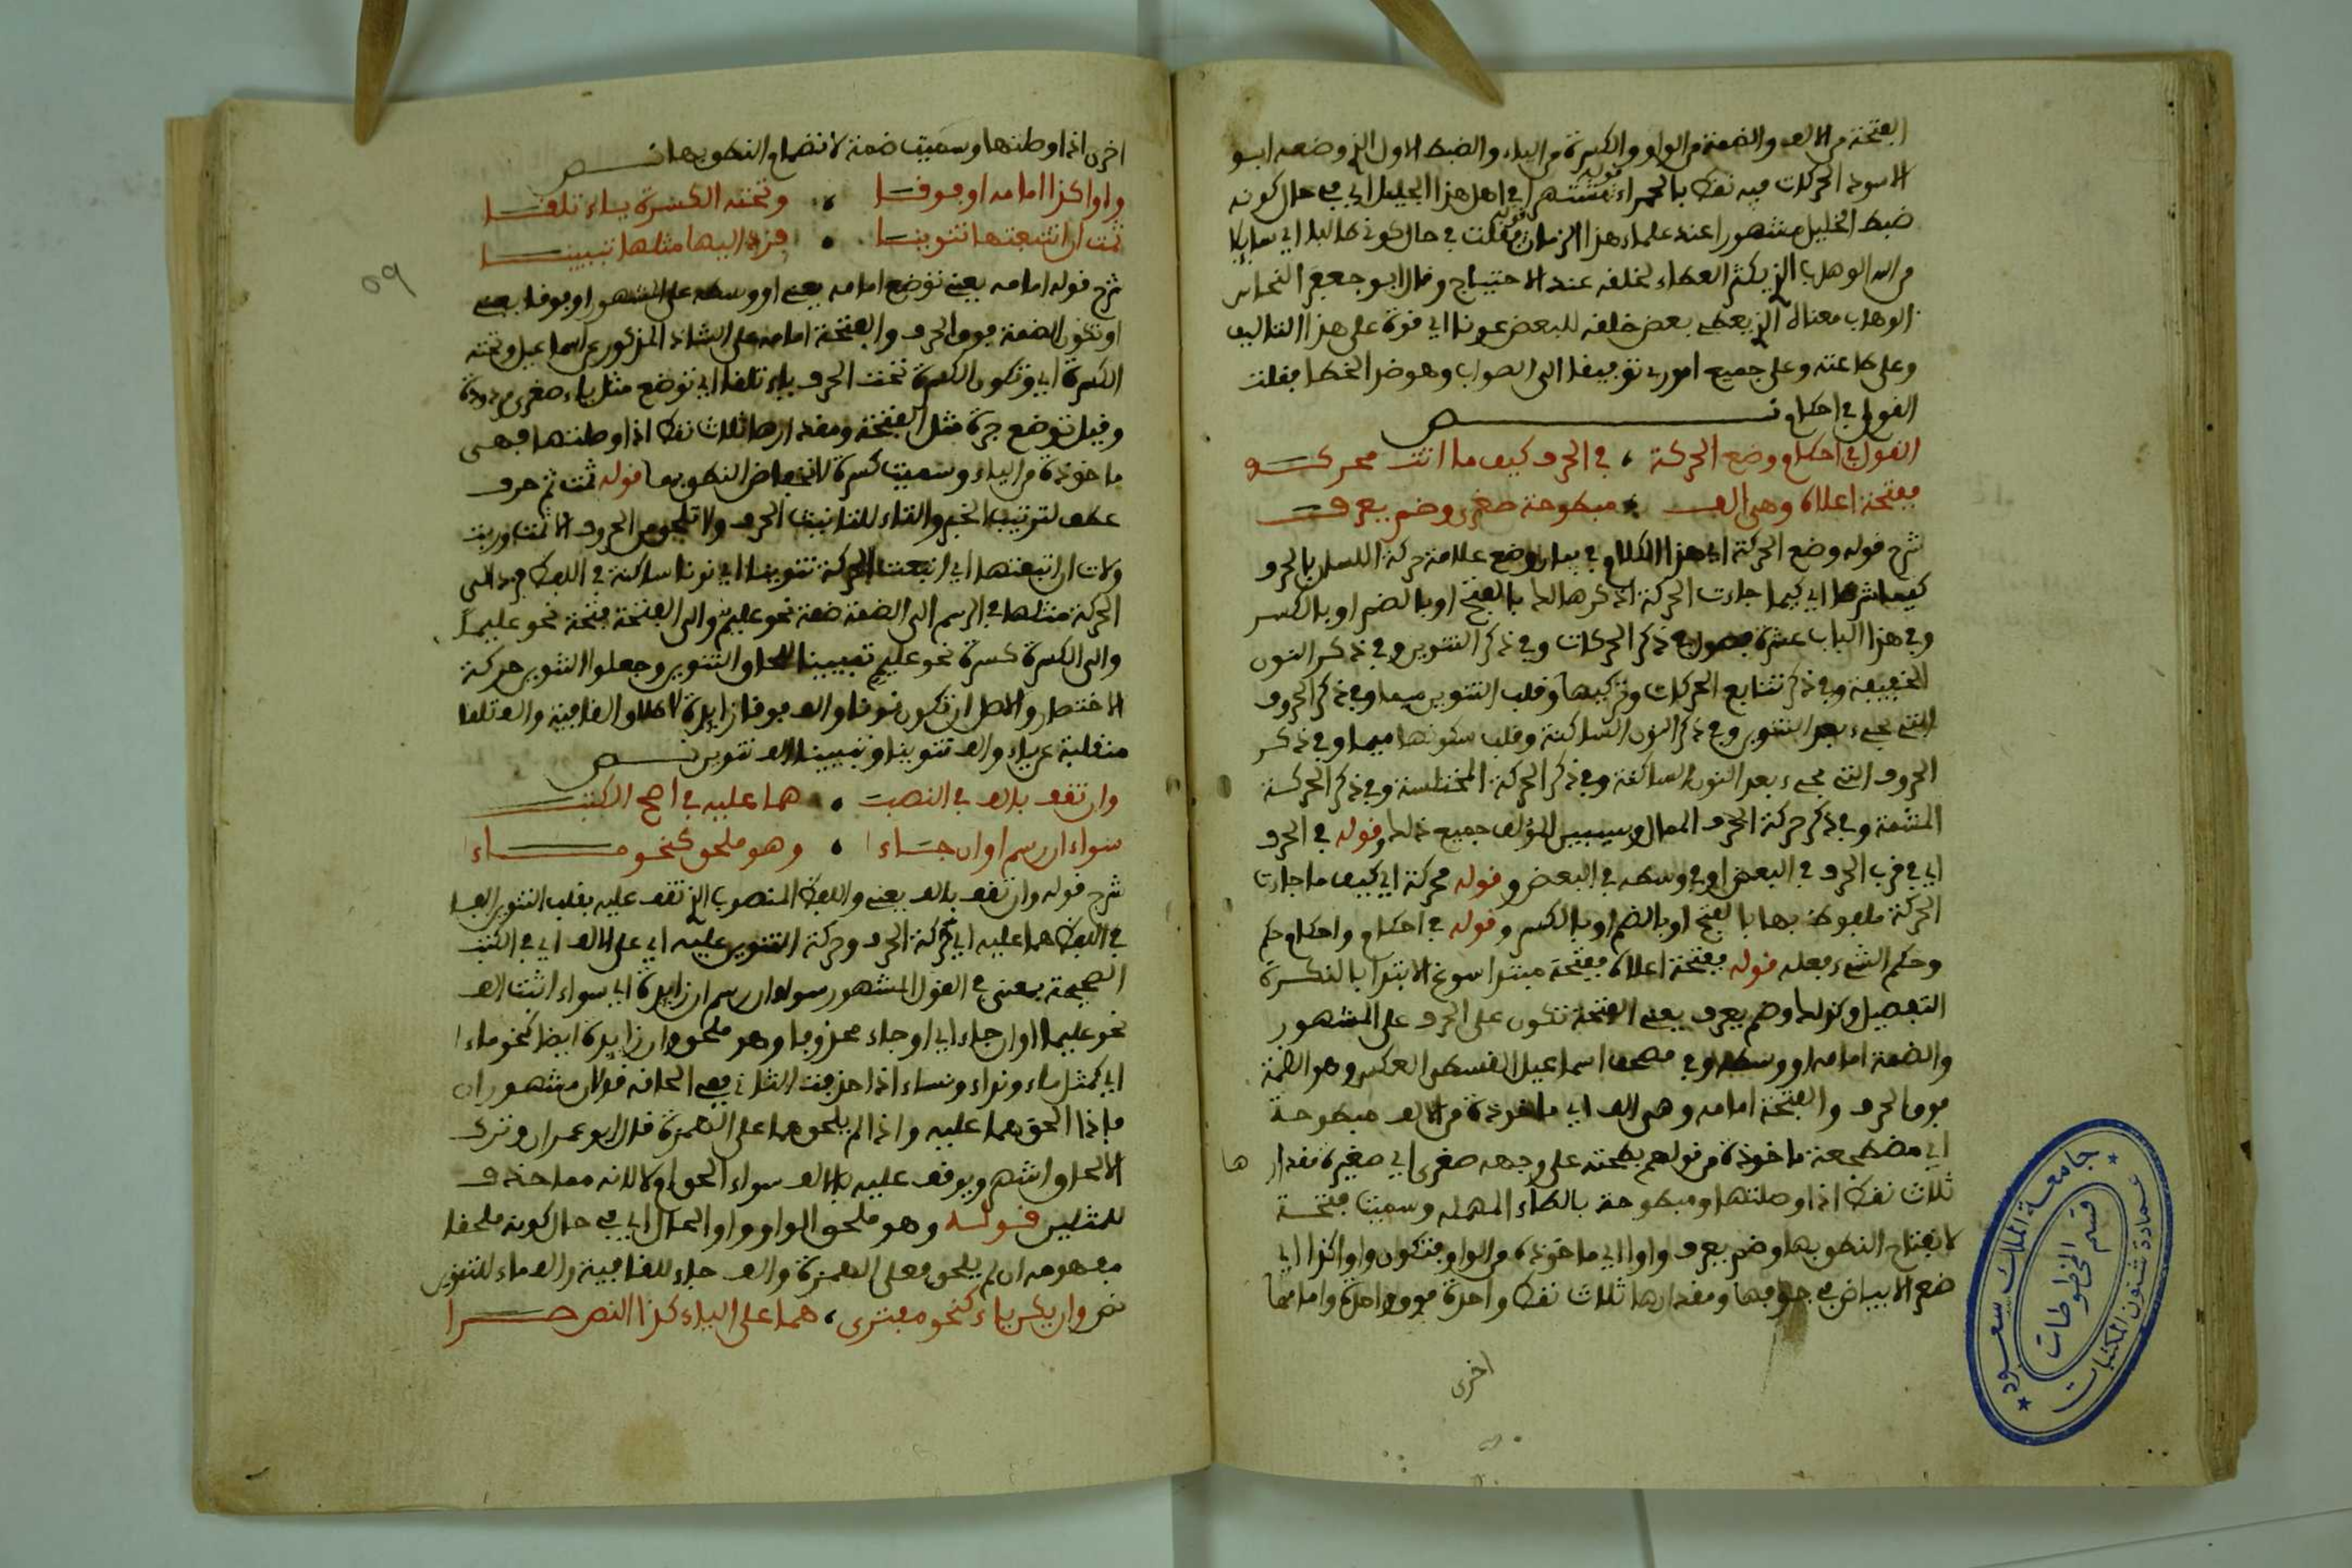 الفتحة من الالف والضمة من الواو والكسرة من الياء والضبط الاول الذي وضعه ابو
الاسود الحركات فيه نقط بالحمراء قوله مشتهرا في اهل هذا الجليل اي في حال كونه
ضبط الخليل مشهورا عند علماء هذا الزمان قوله فقلت في حال كوني طالبا اي سايلا
من الله الوهاب الذي يكثر العطاء لخلقه عند الاحتياج وقال ابو جعفر النحاس
الوهاب معناه الذي يعطي بعض خلقه للبعض عونا اي قوة على هذا التاليف
وعلى طاعته وعلى جميع اموري توفيقا الى الصواب وهو ضد الخطا فقلت
القول في احكام نص
القول في احكام وضع الحركة ، في الحرف كيف ما اتت محركه
ففتحة اعلاه وهي الف ، مبطوحة صغرى وضم يعرف
شرح قوله وضع الحركة اي هذا الكلام في بيان وضع علامة حركة اللسان بالحرف
كيف اي كيما جاءت الحركة اذكرها لك بالفتح او بالضم او بالكسر
وفي هذا الباب عشرة فصول في ذكر الحركات وفي ذكر التنوين وفي ذكر النون
الخفيفة وفي ذكر تتابع الحركات وتركيبها وقلب التنوين ميما وفي ذكر الحروف
التي تجيء بعد التنوين وفي ذكر النون الساكنة وقلب سكونها ميما وفي ذكر
الحروف التي تجيء بعد النون الساكنة وفي ذكر الحركة المختلسة وفي ذكر الحركة
المشمة وفي ذكر حركة الحرف الممال وسيبين المؤلف جميع ذلك وقوله في الحرف
اي في قرب الحرف في البعض او في وسطه في البعض وقوله محركة اي كيف ما جاءت
الحركة ملفوظ بها بالفتح او بالضم او بالكسر وقوله في احكام واحكام حكم
وحكم الشيء فعله قوله ففتحة اعلاه ففتحة مبتدا سوغ الابتدا بالنكرة
التفصيل وكذلك وضم يعرف يعني الفتحة تكون على الحرف على المشهور
والضمة امامه او وسطه وفي مصحف اسماعيل القسط العكس وهو الضمة
فوق الحرف والفتحة امامه وهي الف اي ماخوذة من الالف مبطوحة
اي مضطجعة ماخوذة من قولهم بطحته على وجهه صغرى اي صغيرة مقدارها
ثلاث نقط اذا وصلتها ومبطوحة بالطاء المهملة وسميت فتحة
لانفتاح النطق بها وضم يعرف واوا اي ماخوذة من الواو فتكون واوا كذا اي
ضع الابياض في جوفها ومقدارها ثلاث نقط واحدة فوق واحدة وامامها
اخرى
اخرى اذا وصلتها وسميت ضمة لانضمام النطق بها نص
واوا كذا امامه او فوقا ، وتحته الكسرة ياء تلقا
ثمت ان اتبعتها تنوينا ، فزد اليها مثلها تبيينا
شرح قوله امامه يعني توضع امامه يعني او وسطه على المشهور او فوقا يعني
او تكون الضمة فوق الحرف والفتحة امامه على الشاذ المذكور عن اسماعيل وتحته
الكسرة اي وتكون الكسرة تحت الحرف ياء تلقا اي توضع مثل ياء صغرى مردودة
وقيل توضع جرة مثل الفتحة ومقدارها ثلاث نقط اذا وصلتها فهي
ماخوذة من الياء وسميت كسرة لانخفاض النطق بها قوله ثمت ثم حرف
عطف لترتيب الخبر والتاء لتانيث الحرف ولا تلحق من الحروف الا ثمت وربت
ولات ان اتبعتها اي اتبعت الحركة تنوينا اي نونا ساكنة في اللفظ فزد الى
الحركة مثلها في الرسم الى الضمة ضمة نحو عليم والى الفتحة فتحة نحو عليما
والى الكسرة كسرة نحو عليم تبيينا التنوين وجعلوا التنوين حركة
والاصل ان تكون نونا والف فوقا زايدة لاطلاق القافية والف تلقا
منقلبة عن ياء والف تنوينا وتبيينا الف تنوين نص
وان تقف بالف في النصب ، هما عليه في اصح الكتب
سواء ان رسم او ان جاءا ، وهو ملحق كنحو ماءا
شرح قوله وان تقف بالف يعني واللفظ المنصوب الذي تقف عليه بقلب التنوين الفا
في اللفظ هما عليه اي حركة الحرف وحركة التنوين عليه اي على الالف اي في الكتب
الصحيحة يعني في القول المشهور سواء ان رسم ان زايدة اي سواء اثبت الف
نحو عليما او ان جاء اي او جاء محذوفا وهو ملحق وان زايدة ايضا كنحو ماءا
اي كمثل ماء ونداء ونساء اذا حذفت الثاني ففي الحاقه قولان مشهوران
فاذا الحق هما عليه واذا لم يلحق هما على الهمزة قال ابو عمران وترك
الالحاق اشهر ويوقف عليه بالالف سواء الحق ام لا لانه مما حذف
للمثلين قوله وهو ملحق الواو واو الحال اي في حال كونه ملحقا
مفهومه ان لم يلحق فعلى الهمزة والف جاء للقافية والف ماء للتنوين
نص وان يكن ياء كنحو مفترى ، هما على الياء كذا النص سرا
٥٩
جامعة الملك سعود
عمادة شئون المكتبات
قسم المخطوطات